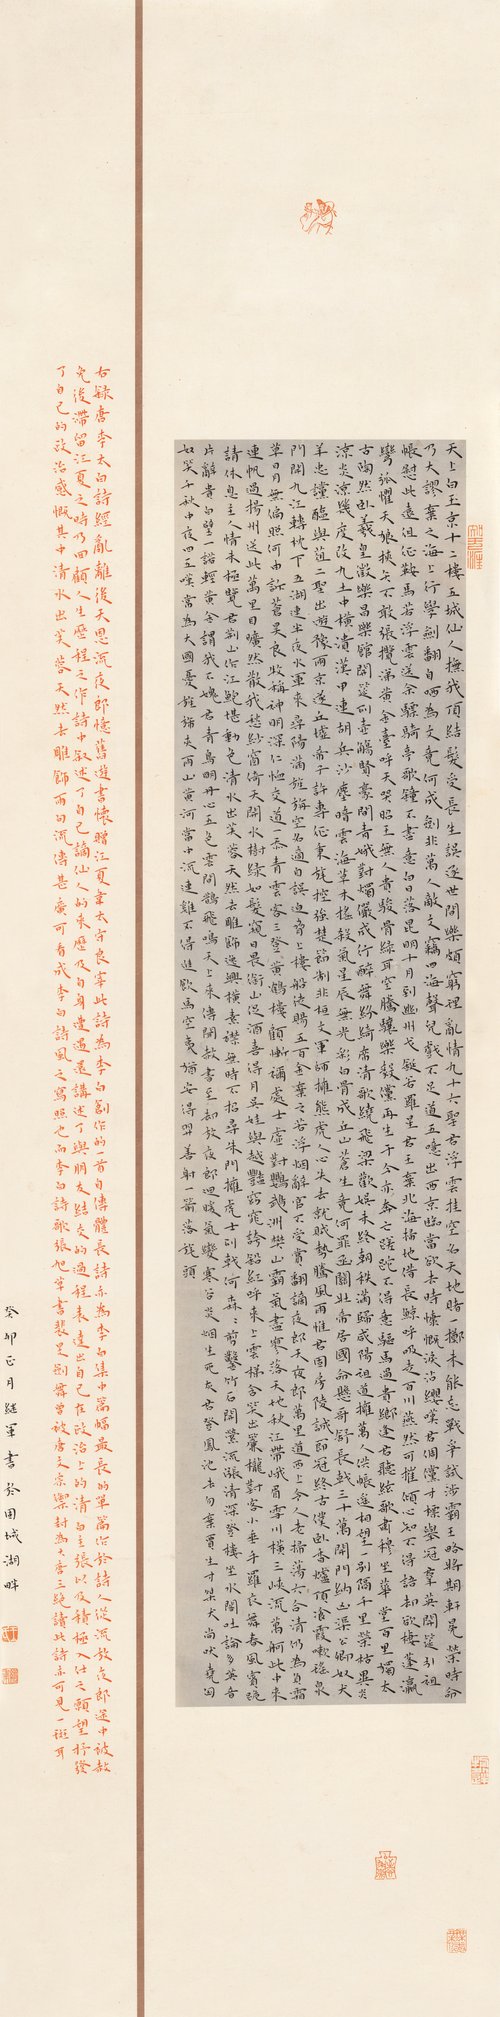 天上白玉京十二樓五城仙人撫我頂結髮受長生誤逐世間樂頗窮理亂情九十六聖君浮雲挂空名天地賭一擲未能忘戰爭試涉霸王略將期軒冕榮時命
乃大謬棄之海上行學劍翻自哂為文竟何成劍非萬人敵文竊四海聲兒戲不足道五噫出西京臨當欲去時慷慨淚沾纓嘆君倜儻才標舉冠群英開筵引祖
帳慰此遠徂征鞍馬若浮雲送余驃騎亭歌鐘不盡意白日落昆明十月到幽州戈鋋若羅星君王棄北海掃地借長鯨呼吸走百川燕然可摧傾心知不得語却欲棲蓬瀛
彎弧懼天狼挾矢不敢張攬涕黃金臺呼天哭昭王無人貴駿骨綠耳空騰驤樂毅儻再生于今亦奔亡蹉跎不得意驅馬過貴鄉逢君聽絃歌肅穆坐華堂百里獨太
古陶然臥羲皇徵樂昌樂館開筵列壺觴賢豪間青娥對燭儼成行醉舞紛綺席清歌繞飛梁歡娛未終朝秩滿歸咸陽祖道擁萬人供帳遙相望一別隔千里榮枯異炎
涼炎涼幾度改九土中橫潰漢甲連胡兵沙塵暗雲海草木搖殺氣星辰無光彩白骨成丘山蒼生竟何罪函關壯帝居國命懸哥舒長戟三十萬開門納凶渠公卿奴犬
羊忠讜醢與菹二聖出遊豫兩京遂丘墟帝子許專征秉旄控強楚節制非桓文軍師擁熊虎人心失去就賊勢騰風雨惟君固房陵誠節冠終古僕臥香爐頂飡霞嗽瑤泉
門開九江轉枕下五湖連半夜水軍來尋陽滿旌旃空名適自誤迫脅上樓船徒賜五百金棄之若浮烟辭官不受賞翻謫夜郎天夜郎萬里道西上令人老掃蕩六合清仍為負霜
草日月無偏照何由訴蒼昊良牧稱神明深仁恤交道一忝青雲客三登黃鶴樓顧慚禰處士虛對鸚鵡洲樊山霸氣盡寥落天地秋江帶峨眉雪川橫三峽流萬舸此中來
連帆過揚州送此萬里目曠然散我愁紗窗倚天開水樹綠如髮窺日畏銜山促酒喜得月吳娃與越豔窈窕誇鉛紅呼來上雲梯含笑出簾櫳對客小垂手羅衣舞春風賓跪
請休息主人情未極覽君荊山作江鮑堪動色清水出芙蓉天然去雕飾逸興橫素襟無時不招尋朱門擁虎士列戟何森森剪鑿竹石開縈流漲清深登樓坐水閣吐論多英音
片辭貴白璧一諾輕黃金謂我不媿君青鳥明丹心五色雲間鵲飛鳴天上來傳聞赦書至却放夜郎迴暖氣變寒谷炎烟生死灰君登鳳池去勿棄賈生才桀犬尚吠堯匈
奴笑千秋中夜四五嘆常為大國憂旌旆夾兩山黃河當中流連雞不得進飲馬空夷猶安得羿善射一箭落旄頭
右録唐李太白詩經亂離後天恩流夜郎憶舊遊書懷贈江夏韋太守良宰此詩為李白創作的一首自傳體長詩亦為李白集中篇幅最長的單篇作於詩人從流放夜郎途中被赦
免後滯留江夏之時乃回顧人生歷程之作詩中叙述了自己謫仙人的來歷及自身遭遇還講述了與朋友結交的過程表達出自己在政治上的清白主張以及積極入仕之願望抒發
了自己的政治感慨其中清水出芙蓉天然去雕飾兩句流傳甚廣可看成李白詩風之寫照也而李白詩歌張旭草書裴旻劍舞曾被唐文宗禦封為大唐三絕讀此詩亦可見一斑耳
癸卯正月繼軍書於困城湖畔